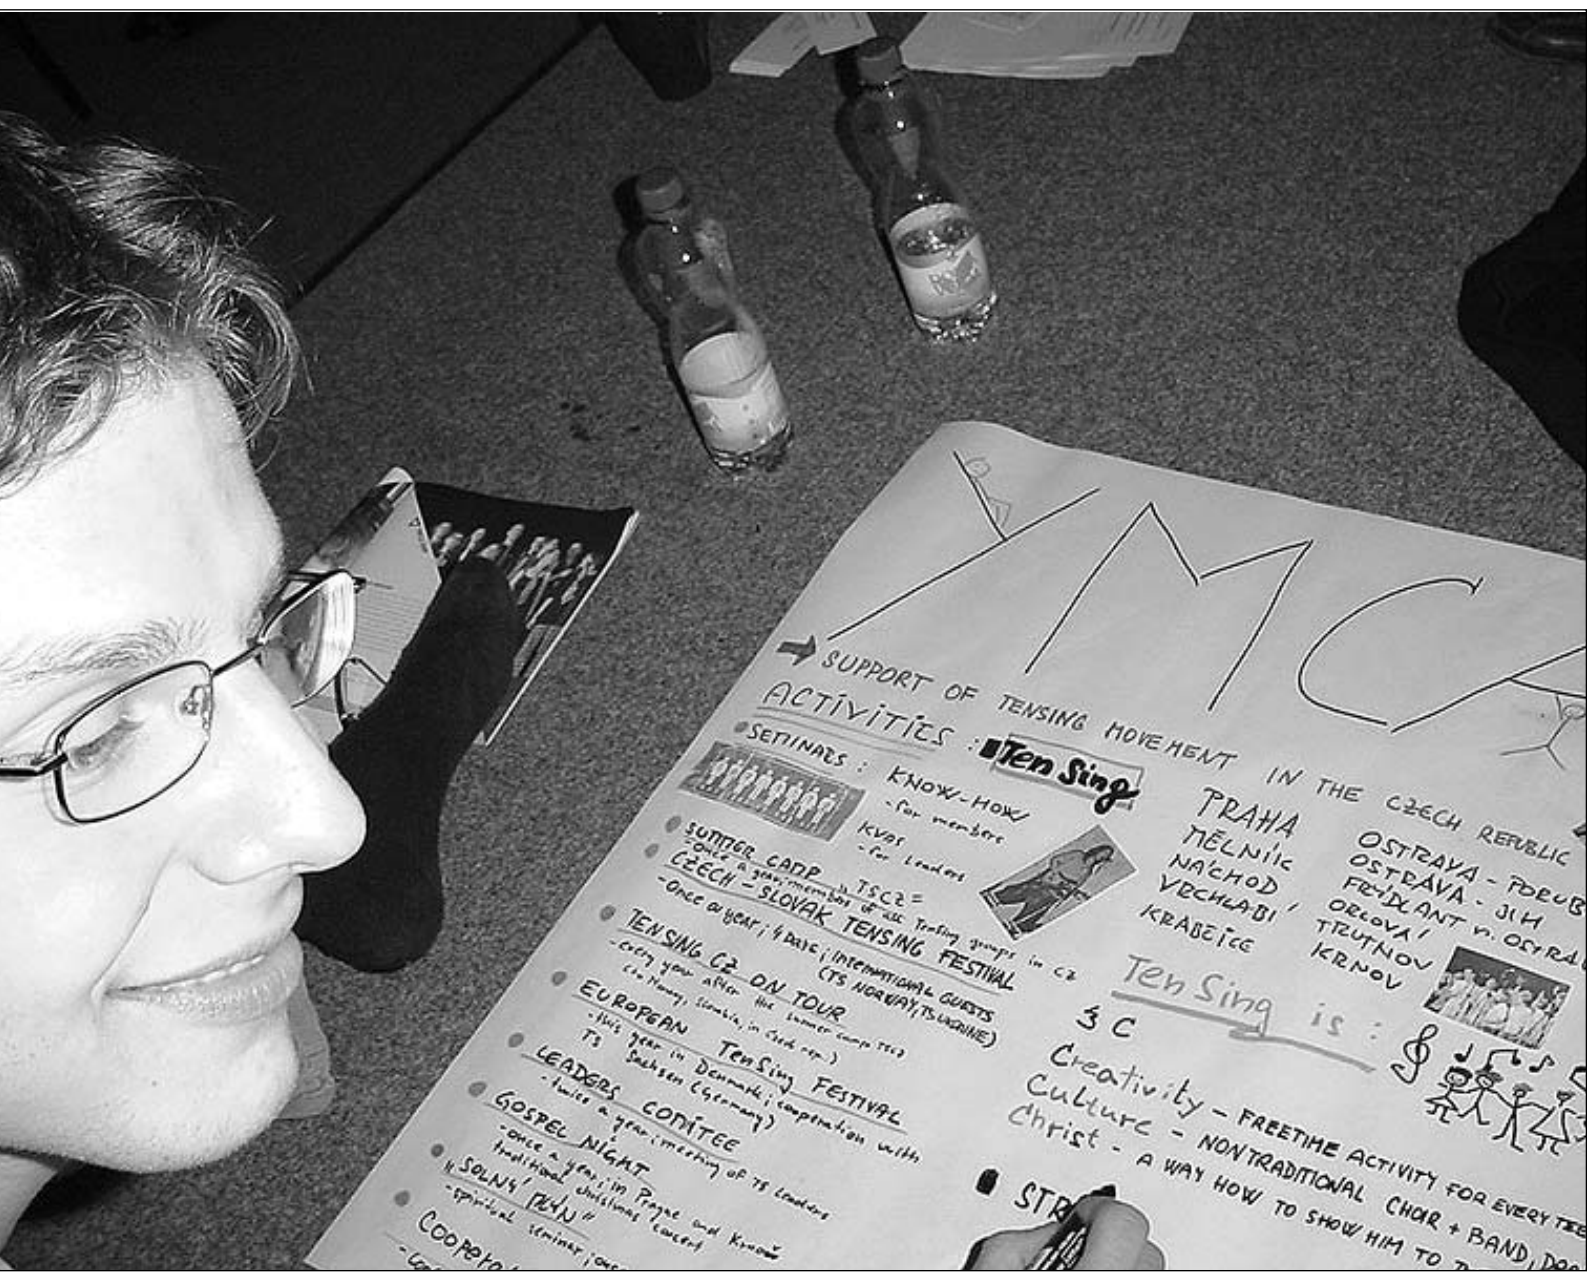 YMCA
SUPPORT OF TENSING MOVEMENT IN THE CZECH REPUBLIC
ACTIVITIES :
Ten Sing
SEMINARS : KNOW-HOW
- for members
KVAS
- for Leaders
SUMMER CAMP "TSCZ"
- once a year: members of all Tensing groups in CZ
CZECH - SLOVAK TENSING FESTIVAL
- once a year, 4 DAYS; INTERNATIONAL GUESTS
(TS NORWAY, TS UKRAINE)
TENSING CZ ON TOUR
- every year after the summer camp TSCZ
in Czech rep.)
EUROPEAN TenSing FESTIVAL
- this year in Denmark; cooperation with
TS Sachsen (Germany)
LEADERS COMITEE
- twice a year: meeting of TS Leaders
GOSPEL NIGHT
- once a year, in Prague and Krnov
traditional christmas concert
"SOLNÝ MLÝN"
- spiritual seminar;
Coopera
PRAHA
MĚLNÍK
NÁCHOD
VRCHLABÍ
KRABČICE
OSTRAVA - PORUB
OSTRAVA - JIH
FRÝDLANT n. OSTRA
ORLOVÁ
TRUTNOV
KRNOV
Ten Sing is :
3 C
Creativity - FREETIME ACTIVITY FOR EVERY TEE
Culture - NONTRADITIONAL CHOIR + BAND,
Christ - A WAY HOW TO SHOW HIM TO
STR